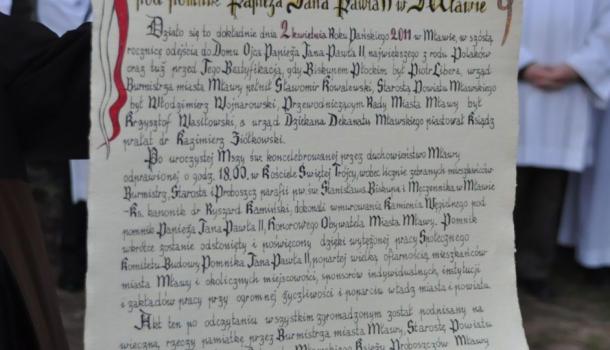 pod pomnik Papieża Jana Pawła II w Mławie
Działo się to dokładnie dnia 2 kwietnia Roku Pańskiego 2011 w Mławie, w szóstą
rocznicę odejścia do Domu Ojca Papieża Jana Pawła II, największego z rodu Polaków
oraz tuż przed Jego Beatyfikacją, gdy Biskupem Płockim był Piotr Libera, urząd
Burmistrza miasta Mławy pełnił Sławomir Kowalewski, Starostą Powiatu Mławskiego
był Włodzimierz Wojnarowski, Przewodniczącym Rady Miasta Mławy był
Krzysztof Wasiłowski, a urząd Dziekana Dekanatu Mławskiego piastował Ksiądz
prałat dr Kazimierz Ziółkowski.
Po uroczystej Mszy św. koncelebrowanej przez duchowieństwo Mławy
odprawionej o godz. 18.00, w Kościele Świętej Trójcy, wobec licznie zebranych mieszkańców
Burmistrz, Starosta i Proboszcz parafii p.w. św. Stanisława Biskupa i Męczennika w Mławie
- Ks. kanonik dr Ryszard Kamiński, dokonali wmurowania Kamienia Węgielnego pod
pomnik Papieża Jana Pawła II, Honorowego Obywatela Miasta Mławy. Pomnik
wkrótce zostanie odsłonięty i poświęcony dzięki wytężonej pracy Społecznego
Komitetu Budowy Pomnika Jana Pawła II, popartej wielką ofiarnością mieszkańców
miasta Mławy i okolicznych miejscowości, sponsorów indywidualnych, instytucji
i zakładów pracy przy ogromnej życzliwości i poparciu władz miasta i powiatu.
Akt ten po odczytaniu wszystkim zgromadzonym został podpisany na
wieczną rzeczy pamiątkę przez Burmistrza miasta Mławy, Starostę Powiatu
Mławskiego Księży Proboszczów Mławy